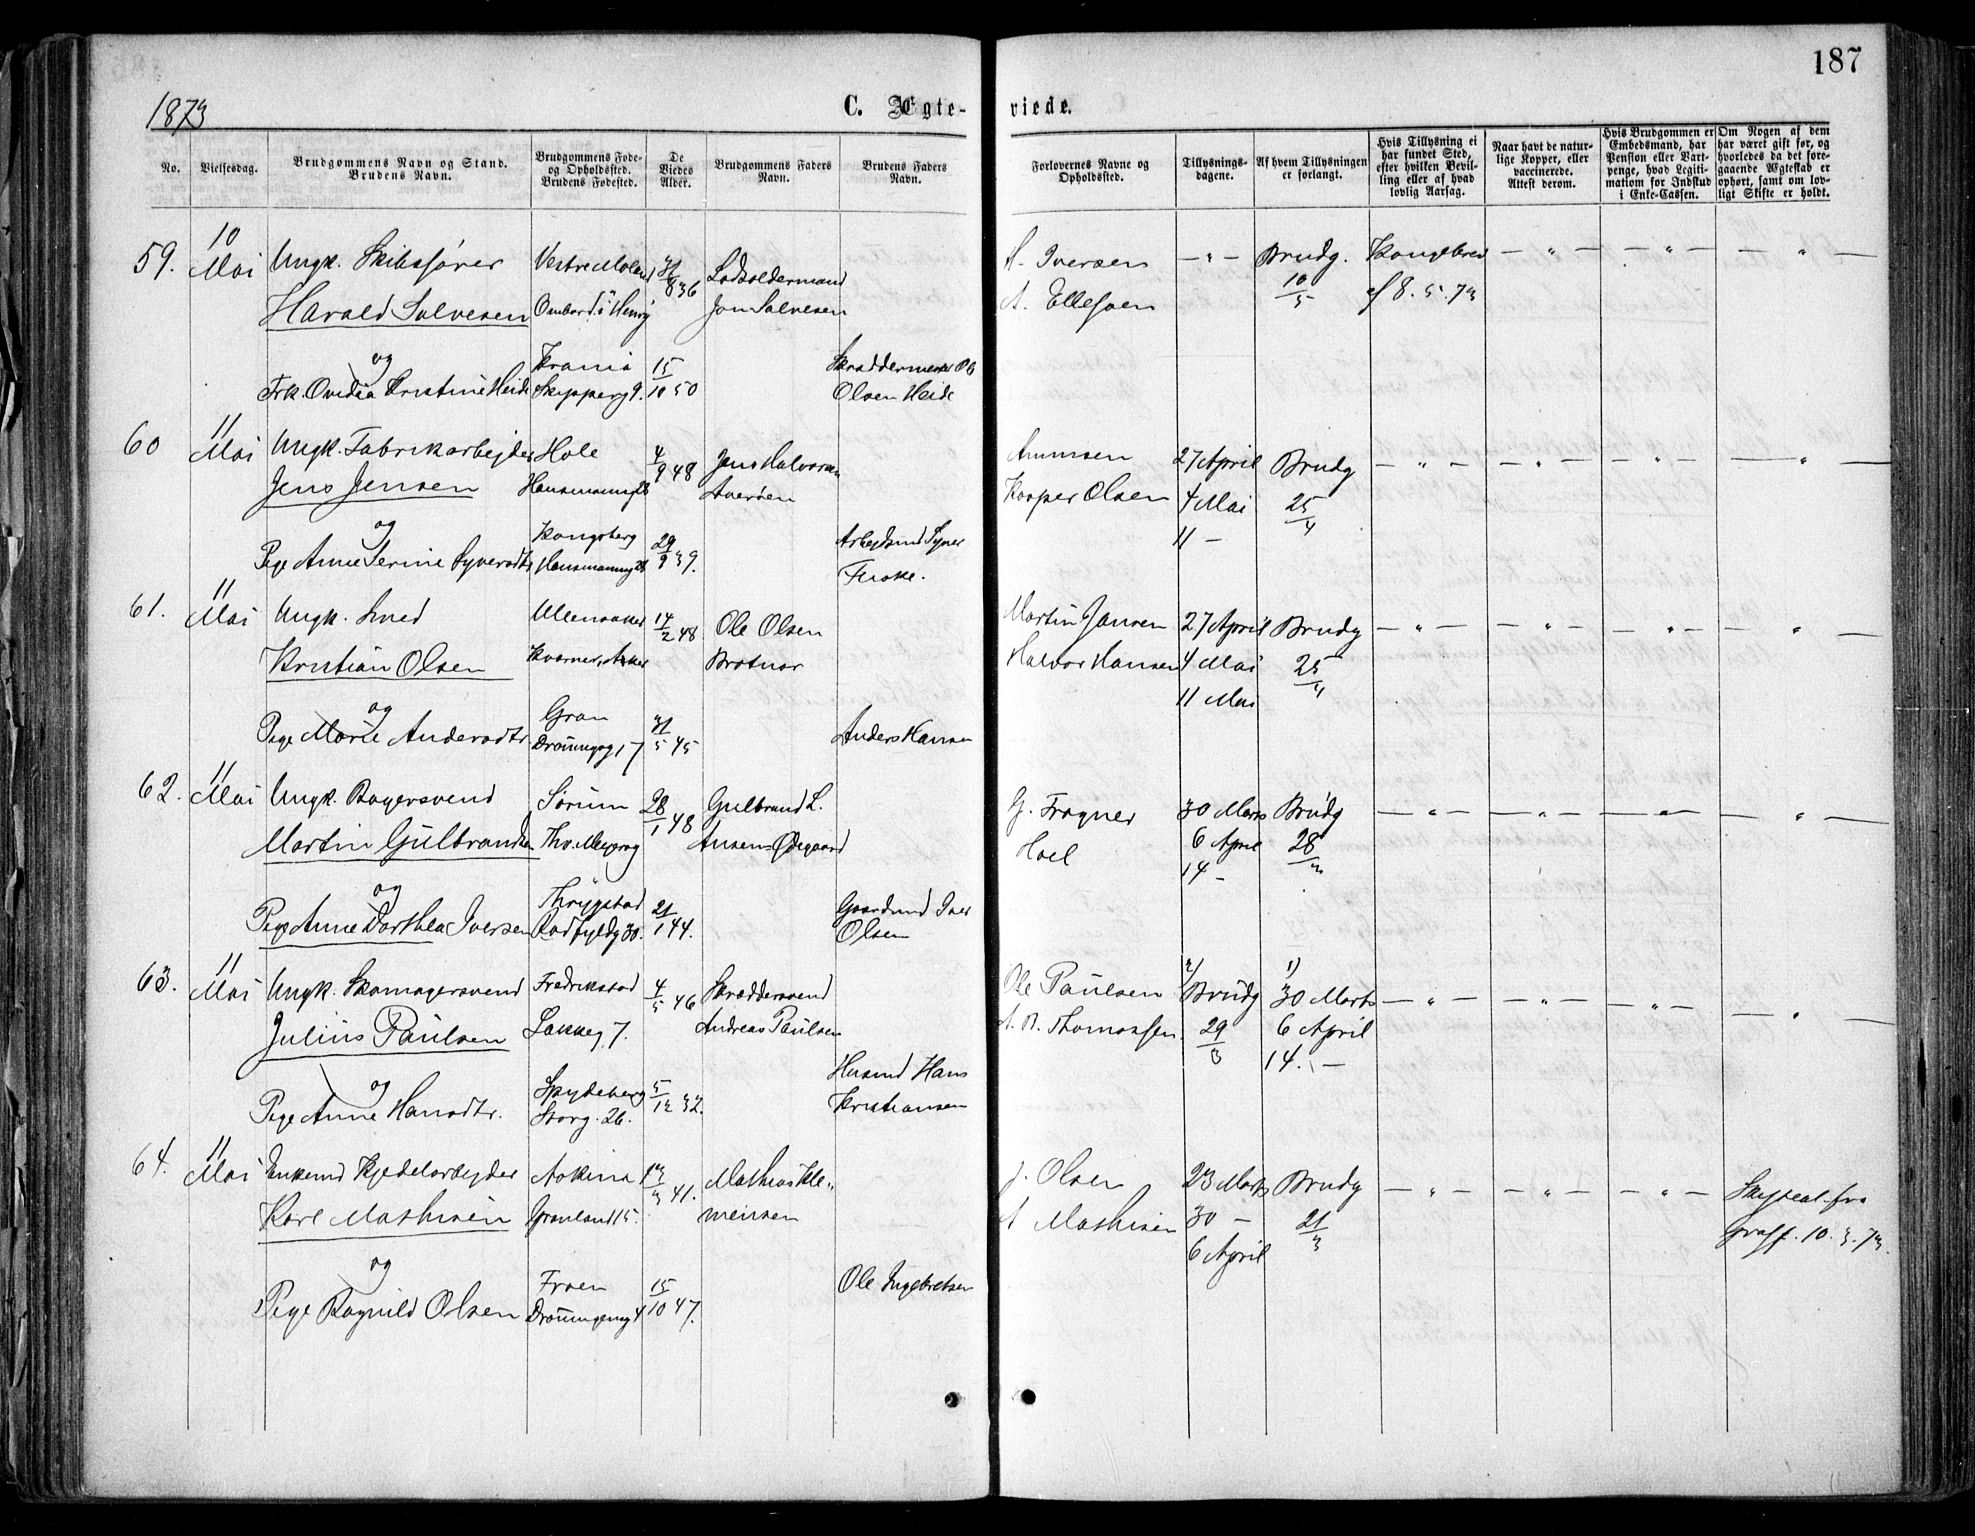 187
1873
C. Ægte-
viede.
No.
Vielsesdag.
Brudgommens Navn og Stand.
Brudens Navn.
Brudgommens Føde-
og Opholdssted.
Brudens Fødested.
De
Viedes
Alder.
Brudgommens Faders
Navn.
Brudens Faders
Navn.
Forlovernes Navne og
Opholdssted.
Tillysnings-
dagene.
Af hvem Tillysningen
er forlangt.
Hvis Tillysning ei
har fundet Sted,
efter hvilken Bevil-
ling eller af hvad
lovlig Aarsag.
Naar havt de natur-
lige Kopper, eller
vaccinerede.
Attest derom.
Hvis Brudgommen er
Embedsmand, har
Pension eller Vart-
penge, hvad Legiti-
mation for Indskud
i Enke-Cassen.
Om Nogen af dem
har været gift før, og
hvorledes da det fore-
gaaende Ægteskab er
ophørt, samt om lov-
ligt Skifte er holdt.
59. 10 Mai Ungk. Skibsfører Vestre Moland 31/8 36 Lodsoldermand
Harald Salvesen Ombord i Henry Jon Salvesen
H. Iversen — " — Brudg. Kongebrev — " — — " — — " —
A. Ellefsen 10/5 af 8.5.73
og Krania 15/10 50
Frk. Ovidia Kristine Heide Skipperg 9. Olsen Heide
60 11 Mai Ungk. Fabrikarbejder Hole 4/9 48 Jens Halvorsen
Jens Jensen Hausmannsg 28
Amunsen 27 April Brudg — " — — " — — " — — " —
Kasper Olsen 4 Mai 25/4
11 —
og Kongsberg 29/9 39. Arbejdsmd Syver
Pige Anne Serine Syversdtr Hausmannsg 28
61. 11 Mai Ungk. Smed Ullensaker 14/2 48 Ole Olsen
Kristian Olsen Kværner, Aker Bratnar
Martin Jansen 27 April Brudg — " — — " — — " — — " —
Halvor Hansen 4 Mai 25/4
11 Mai
og Gran 31/5 45
Pige Marie Andersdtr. Dronningsg 17 Anders Hansen
62. 11 Mai Ungk. Bagersvend Sørum 28/1 48 Gulbrand L.
Martin Gulbrandsen Thv. Meyersg Ødegaard
G. Fragner 30 Marts Brudg — " — — " — — " — — " —
Hoel 6 April 28/3
14 —
og Thrygstad 21/1 44. Gaardmd Iver
Pige Anne Dorthea Iversen Rødfyldg 30. Olsen
63. 11 Mai Ungk. Skomagersvend Fredrikstad 4/5 46 Skræddersvend
Julius Paulsen Lakkeg 7. Andreas Paulsen
Ole Paulsen 2/ Brudg 1/ 30 Marts — " — — " — — " — — " —
A. B. Thomassen. 29/3 6 April
14. —
og Spydeberg 5/12 32. Husmd Hans
Pige Anne Hansdtr. Storg. 26. Kristiansen
64. 11 Mai Enkemd Kjedelarbejder Askim 13/3 41. Mathias Kle-
Karl Mathisen Grønland 15. mensen
J. Olsen 23 Marts Brudg — " — — " — — " — Skifteat. fra
A Mathisen 30 — 21/3 10.3.73.
6 April
og Froen 15/10 47. Ole Ingebretsen
Pige Ragnild Olsen Dronningensg 4